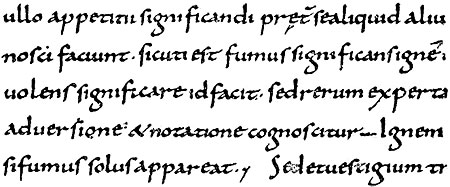 ullo appetitu significandi pręt̄ sealiquid aliu
nosci faciunt · sicuti est fumus significans ignē ·
uolens significare id facit · sed rerum experta
aduersione & notatione cognoscitur ignem
si fumus solus appareat · Sed et uestigium tr